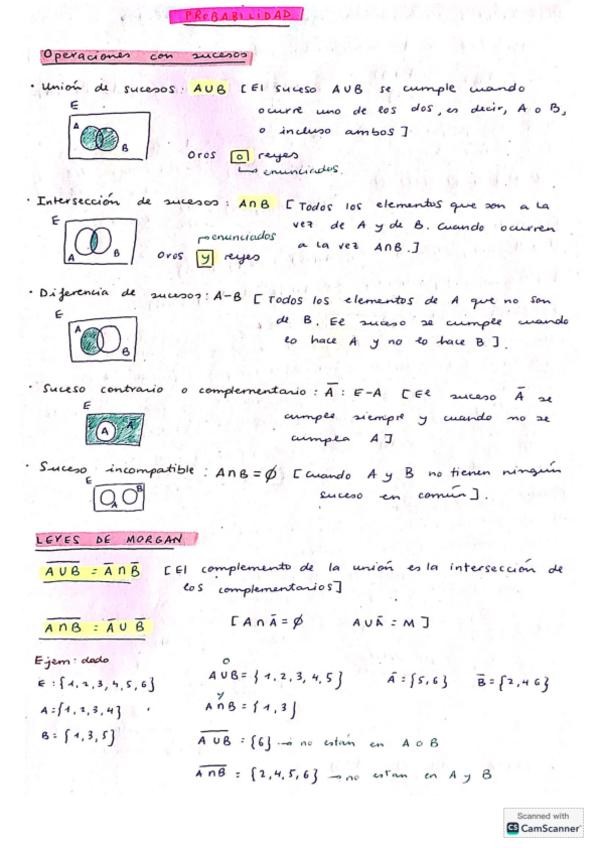 PROBABILIDAD
Operaciones con sucesos
· Unión de sucesos: A∪B [El suceso A∪B se cumple cuando
ocurre uno de los dos, es decir, A o B,
o incluso ambos]
E
A
B
Oros o reyes
↳ enunciados.
· Intersección de sucesos: A∩B [Todos los elementos que son a la
vez de A y de B. Cuando ocurren
a la vez A∩B.]
E
A B
enunciados
Oros y reyes
· Diferencia de sucesos: A-B [Todos los elementos de A que no son
de B. El suceso se cumple cuando
lo hace A y no lo hace B].
E
A
B
· Suceso contrario o complementario: A̅ : E-A [El suceso A̅ se
cumple siempre y cuando no se
cumpla A]
E
A A̅
· Suceso incompatible: A∩B = ∅ [Cuando A y B no tienen ningún
suceso en común].
E
A B
LEYES DE MORGAN
A̅∪̅B̅ = A̅ ∩ B̅ [El complemento de la unión es la intersección de
los complementarios]
A̅∩̅B̅ = A̅ ∪ B̅ [A∩A̅ = ∅ A∪A̅ = M]
Ejem: dado
E: {1,2,3,4,5,6}
A: {1,2,3,4}
B: {1,3,5}
o
A∪B = {1,2,3,4,5} A̅ = {5,6} B̅ = {2,4 6}
y
A∩B = {1,3}
A̅∪̅B̅ = {6} → no están en A o B
A̅∩̅B̅ = {2,4,5,6} → no estan en A y B
Scanned with
CS CamScanner